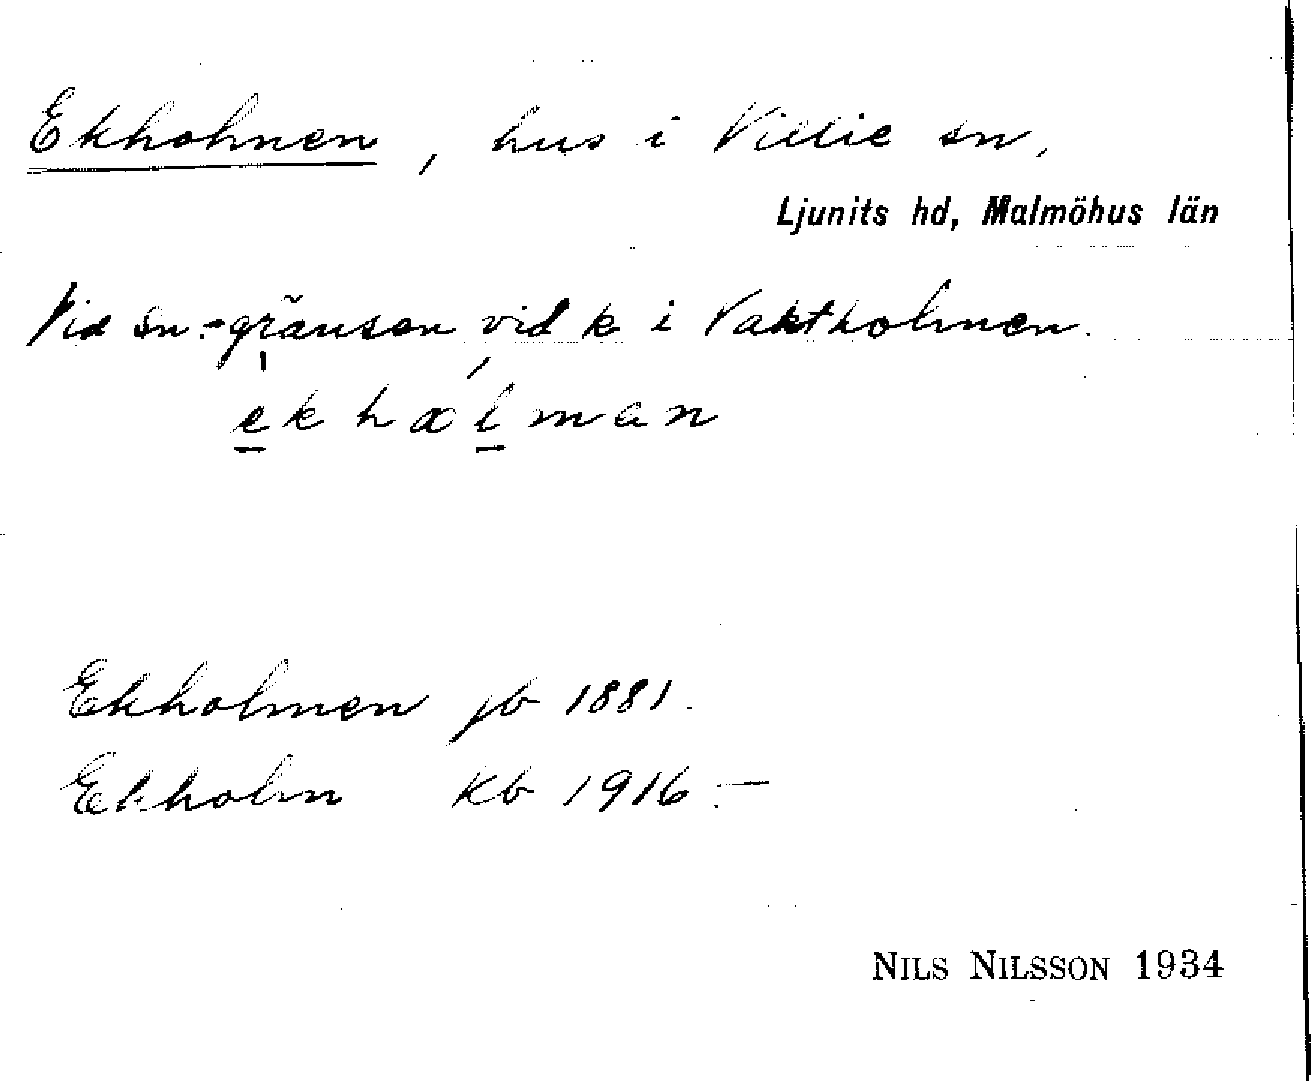 Ekholmen, hus i Villie sn,
Ljunits hd, Malmöhus län
Vid sn:gränsen vid k i Vaktholmen.
ekhalman
Ekholmen jb 1881.
Ekholm kb 1916.—
NILS NILSSON 1934